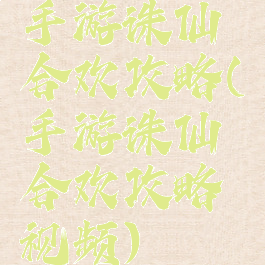 手游诛仙
合欢攻略(
手游诛仙
合欢攻略
视频)